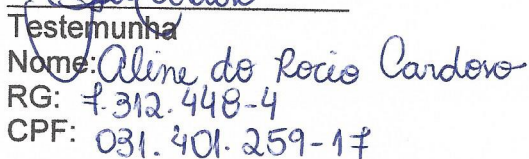 Testemunha
Nome: Aline do Rocio Cardoso
RG: 7.312.448-4
CPF: 031.401.259-17